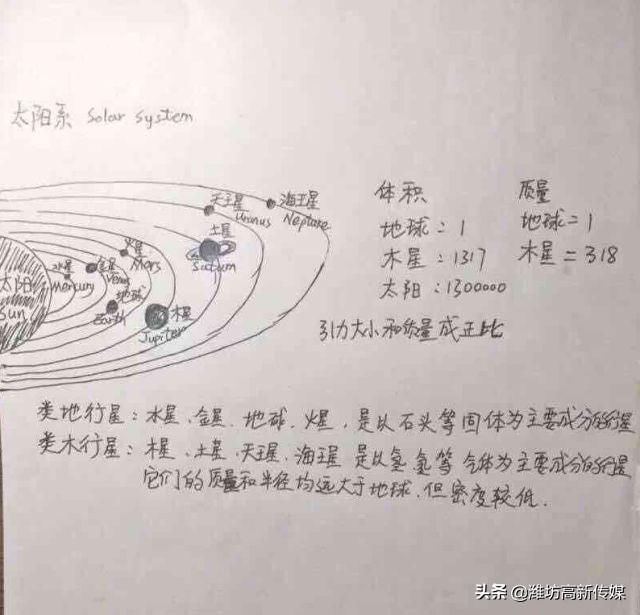 太阳系 Solar System
天王星
Uranus
海王星
Neptune
土星
Saturn
火星
Mars
水星
Mercury
金星
Venus
地球
Earth
木星
Jupiter
太阳
Sun
体积
地球=1
木星:1317
太阳:1300000
质量
地球=1
木星=318
引力大小和质量成正比
类地行星:水星、金星、地球、火星,是以石头等固体为主要成分的行星
类木行星:木星、土星、天王星、海王星 是以氢氦等气体为主要成分的行星
它们的质量和半径均远大于地球,但密度较低.
头条 @潍坊高新传媒